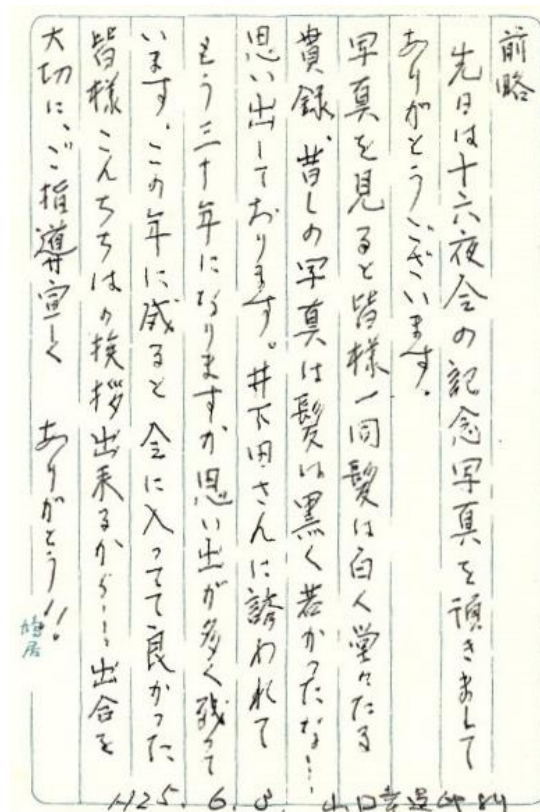 前略
先日は十六夜会の記念写真を頂きまして
ありがとうございます。
写真を見ると皆様一同髪は白く堂々たる
貫録、昔しの写真は髪は黒く若かったな…
思い出しております。井下田さんに誘われて
もう三十年になりますが思い出が多く残って
います。この年に成ると会に入ってて良かった
皆様こんちちはの挨拶出来るから…出合を
大切に、ご指導宣しく ありがとう!!
鳩居
H25.6.8. 山口